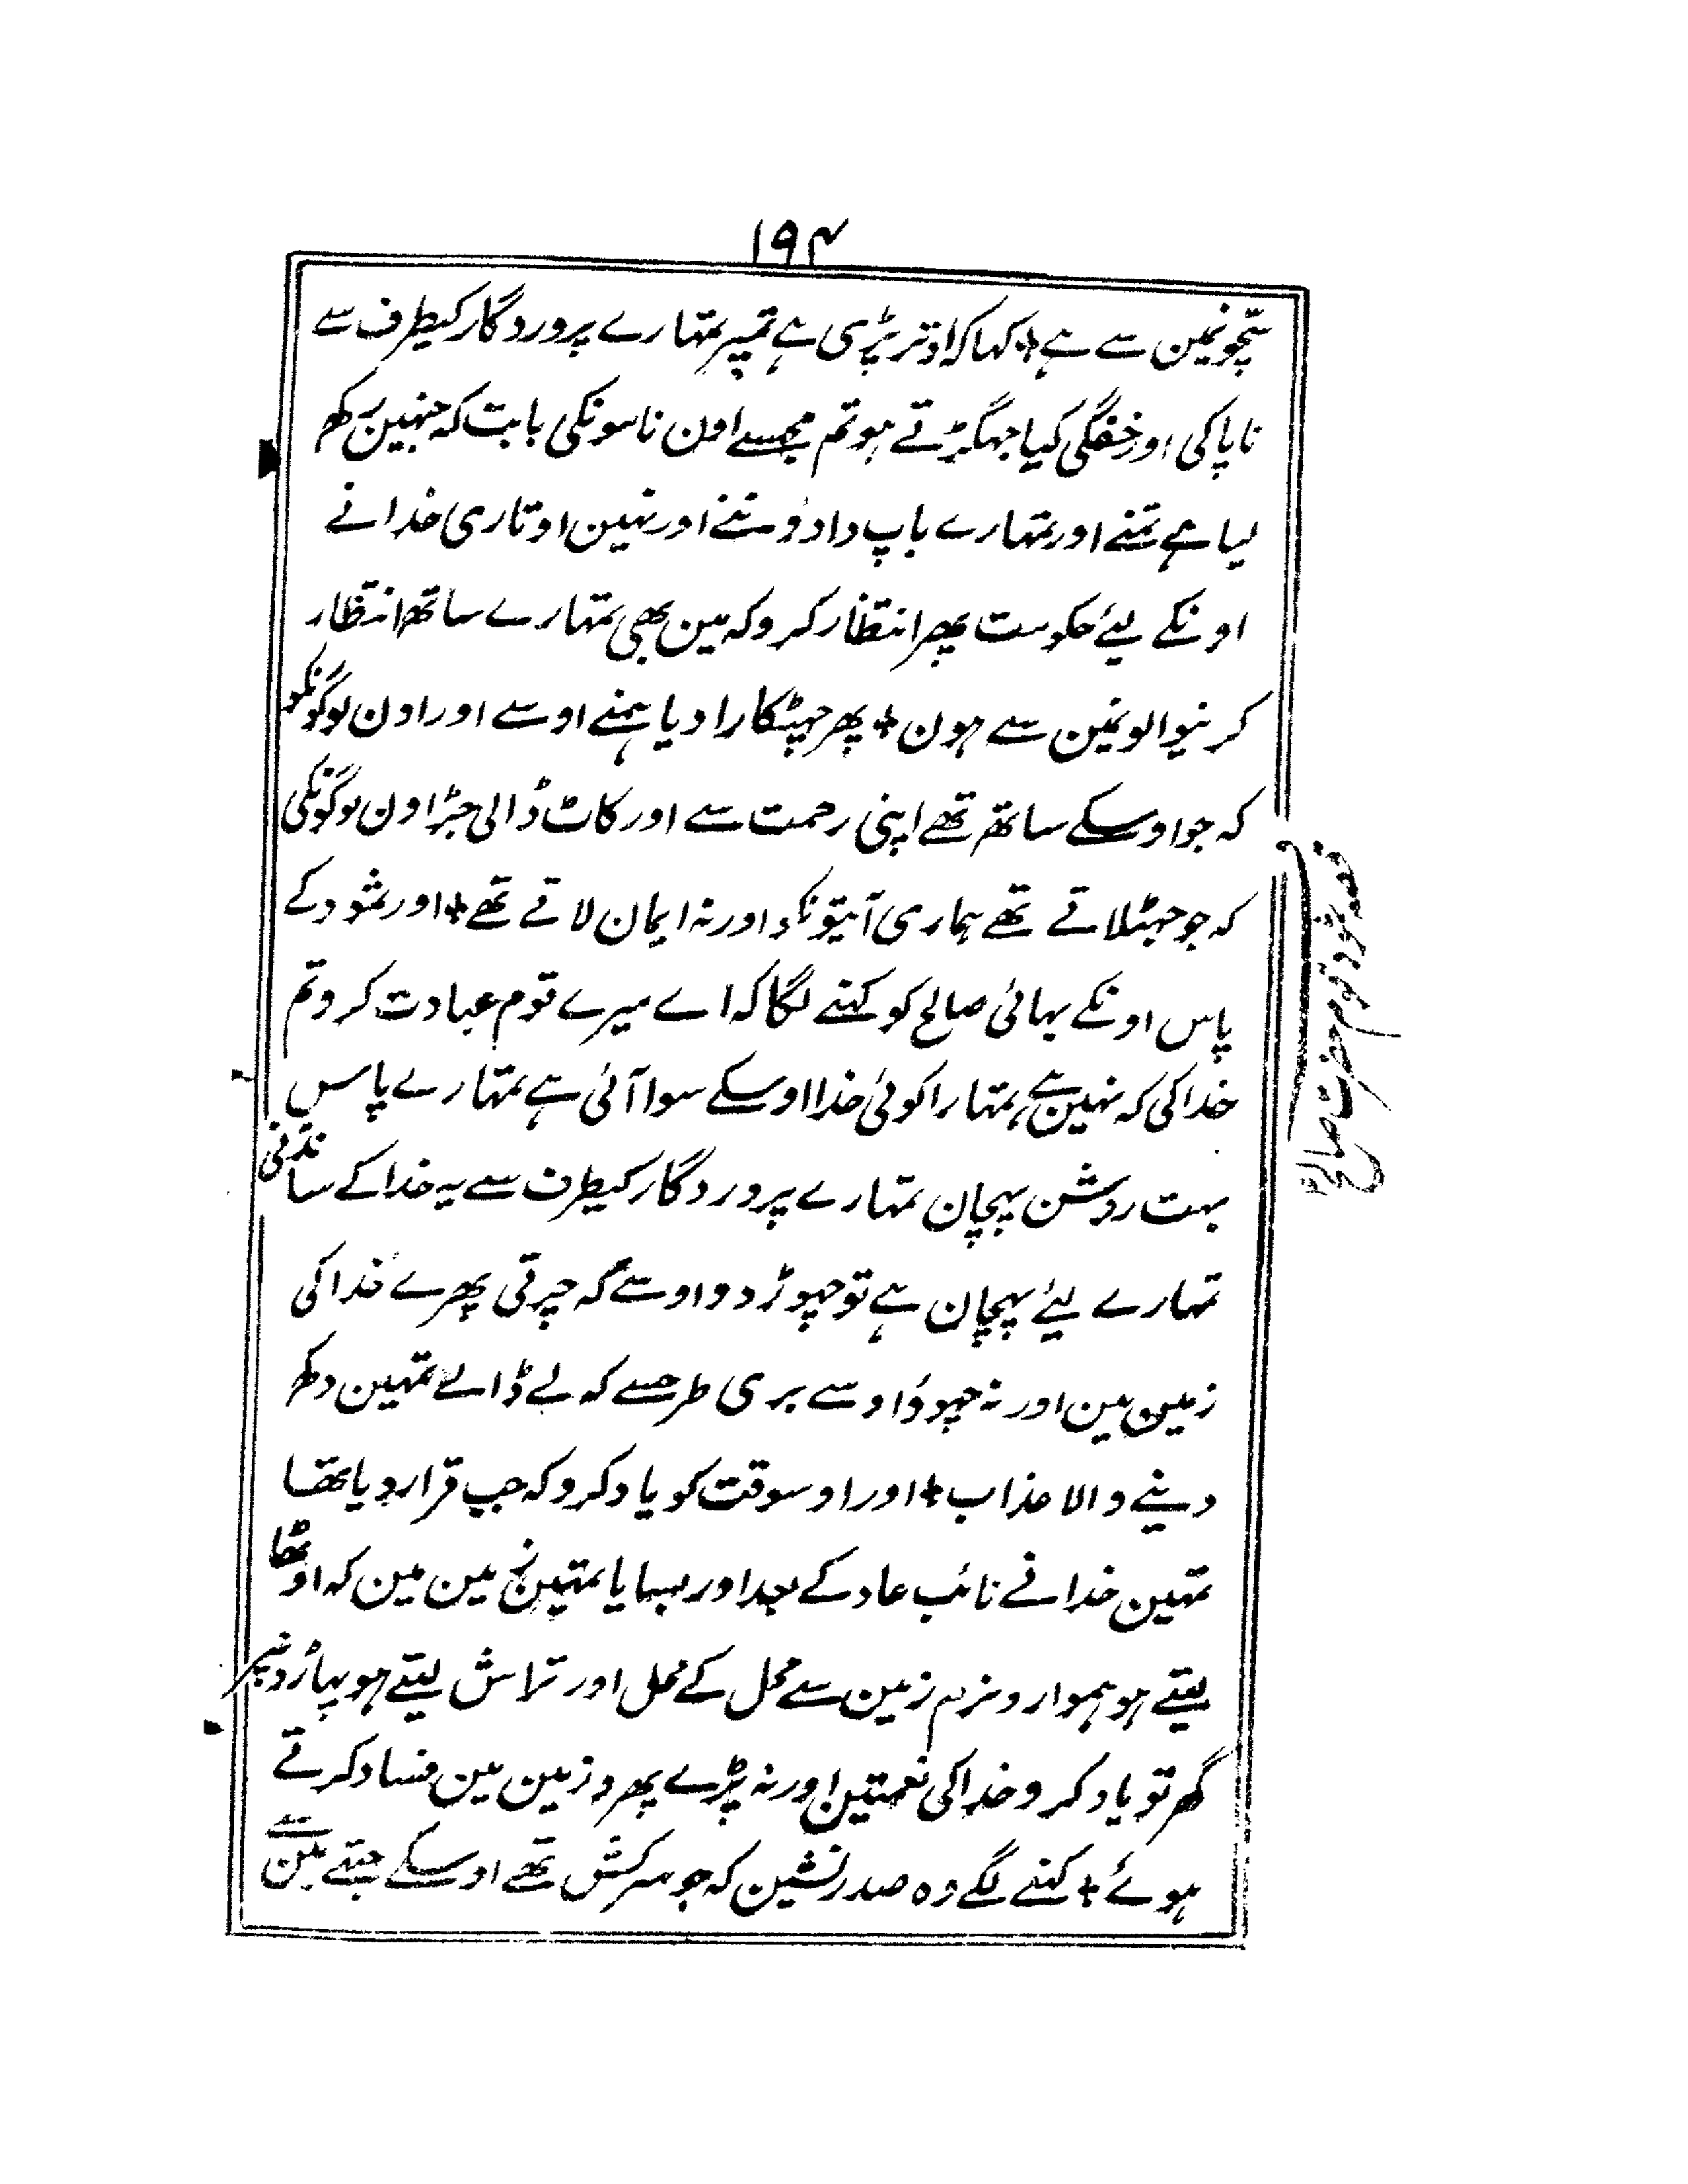 ۱۹۴
سچونمین سے ہے ٭ کہا کہ اوتر پڑی ہے تمپر تمہارے پروردگار کیطرف سے
ناپاکی اور خفگی کیا جہگڑتے ہو تم مجھسے اون نامونکی بابت کہ جنہین رکھ
لیا ہے تمنے اور تمہارے باپ دادوننے اور نہین اوتاری خدا نے
اونکے لیئے حکومت پھر انتظار کرو کہ مین بھی تمہارے ساتھ انتظار
کرنیوالونمین سے ہون ٭ پھر چہٹکارا دیا ہمنے اوسے اور اون لوگونکو
کہ جو اوسکے ساتھ تھے اپنی رحمت سے اور کاٹ ڈالی جڑ اون لوگونکی
کہ جو جہٹلاتے تھے ہماری آیتونکو اور نہ ایمان لاتے تھے ٭ اور ثمود کے
پاس اونکے بہائی صالح کو کہنے لگا کہ اے میرے قوم عبادت کرو تم
خدا کی کہ نہین ہے تمہارا کوئی خدا اوسکے سوا آئی ہے تمہارے پاس
بہت روشن پہچان تمہارے پروردگار کیطرف سے یہ خدا کے سانڈنی
تمہارے لیئے پہچان ہے تو چہوڑ دو اوسے کہ چرتی پھرے خدا کی
زمین مین اور نہ چہوؤ اوسے بری طرحسے کہ لے ڈالے تمہین دکھ
دینے والا عذاب ٭ اور اوسوقت کو یاد کرو کہ جب قرار دیا تھا
تمہین خدا نے نائب عاد کے بعد اور بسایا تمہین زمین مین کہ اوٹھا
لیتے ہو ہموار و نرم زمین سے محل کے محل اور تراش لیتے ہو پہاڑونپر
گھر تو یاد کرو خدا کی نعمتین اور نہ پڑے پھرو زمین مین فساد کرتے
ہوئے ٭ کہنے لگے وہ صدر نشین کہ جو سرکش تھے اوسکے جتے مین سے
قصہ ثمود قوم حضرت صالح